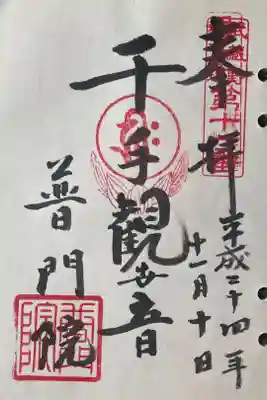 奉拝
平成二十四年
十一月十日
千手観世音
普門院